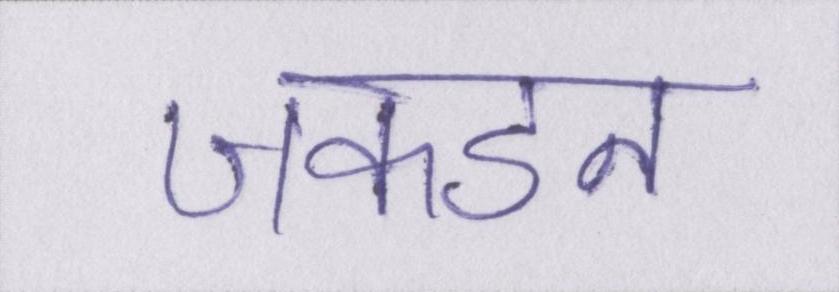 जकडन